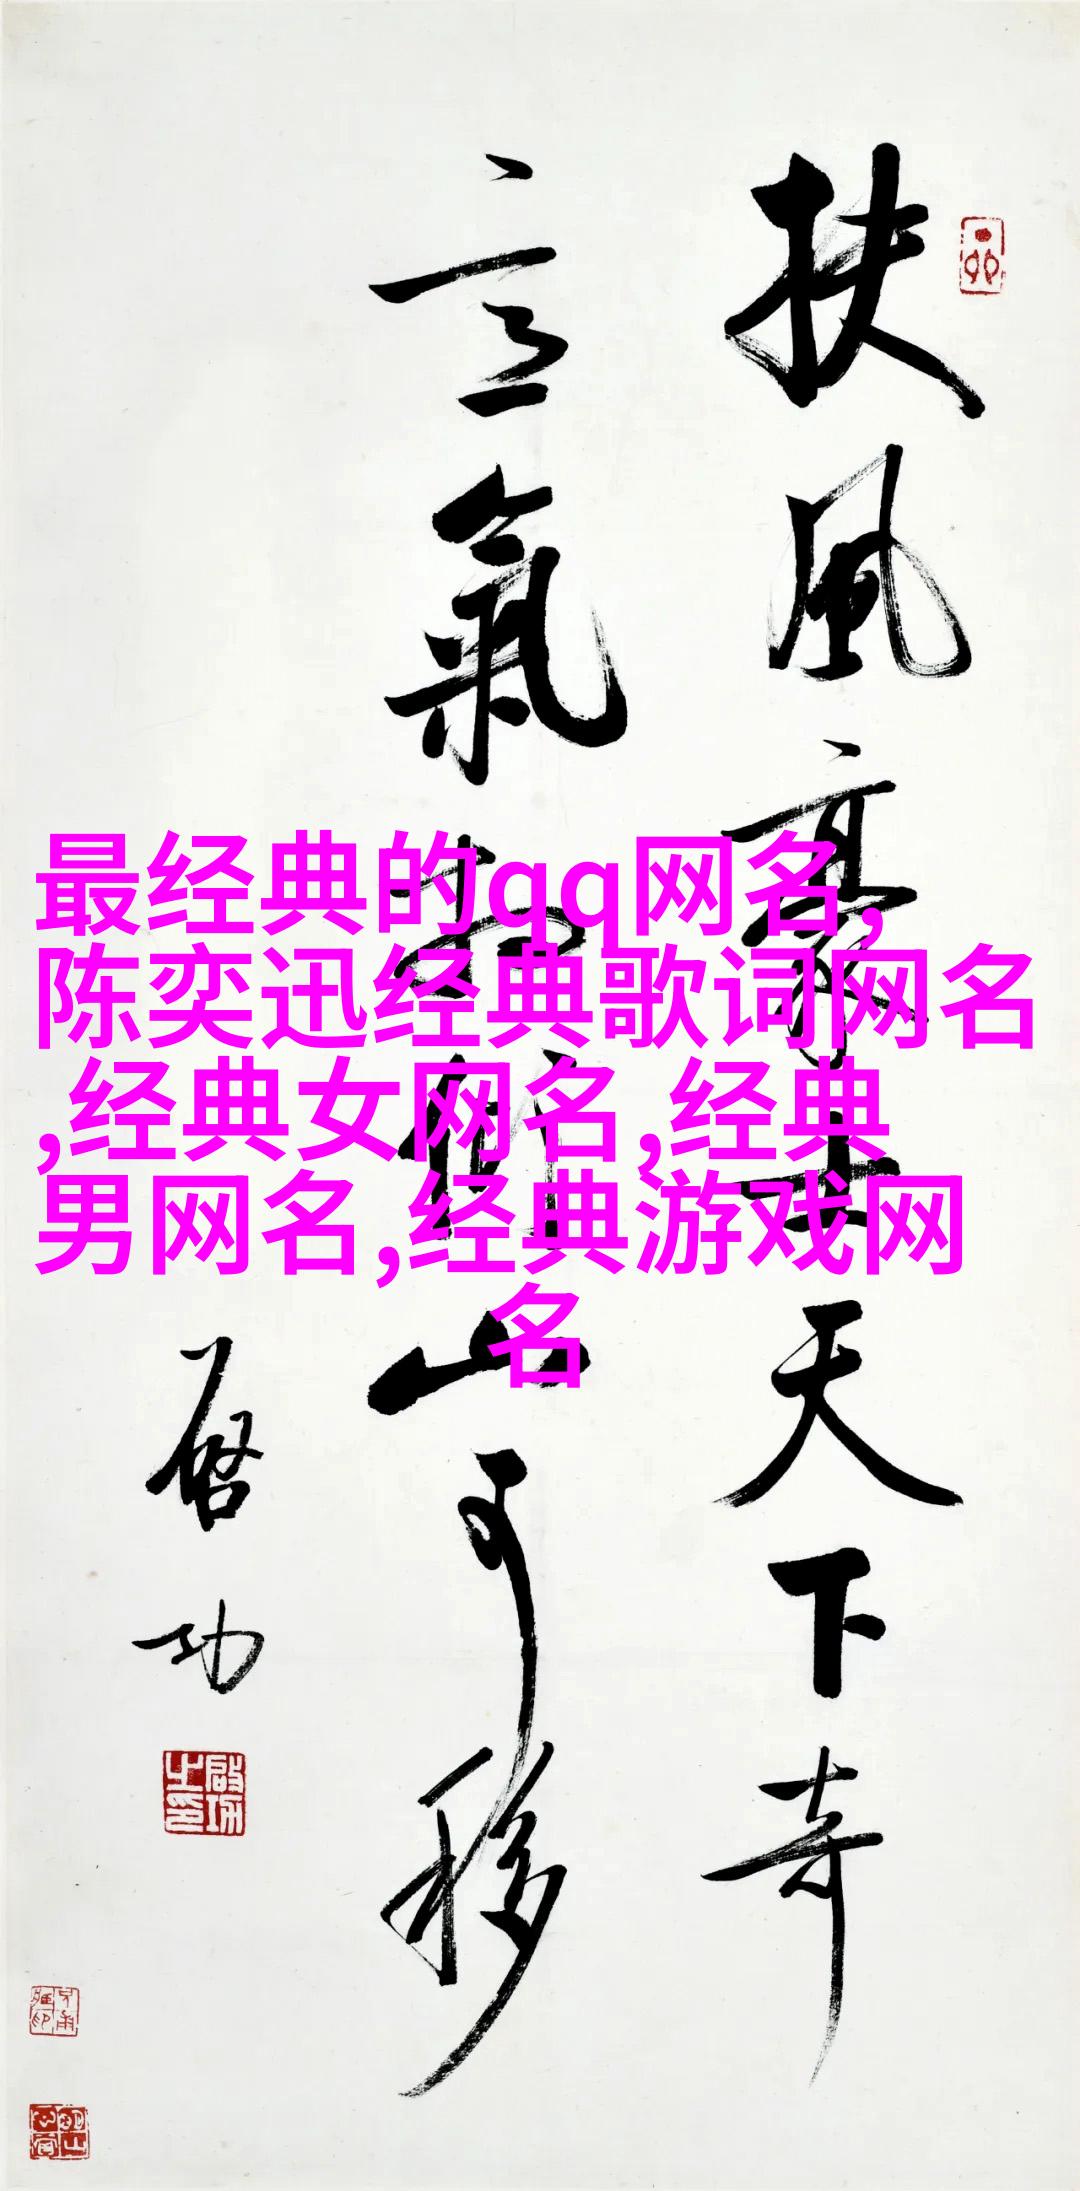 扶風豪士天下奇
意氣相傾山可移
启功
啟功之印
最经典的qq网名,
陈奕迅经典歌词网名
,经典女网名,经典
男网名,经典游戏网
名